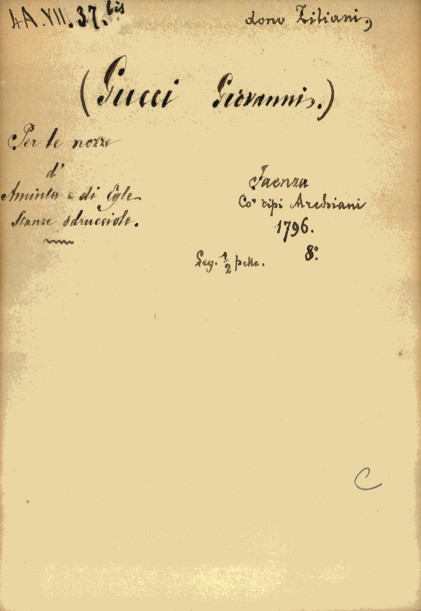 4A.VII.37.bis
dono Ziliani,
(Gucci Giovanni.)
Per le nozze
d'
Aminta e di Egle
Stanze sdrucciole.
Faenza
Co' tipi Archiani
1796.
8°.
Leg. 1/2 pelle.
C